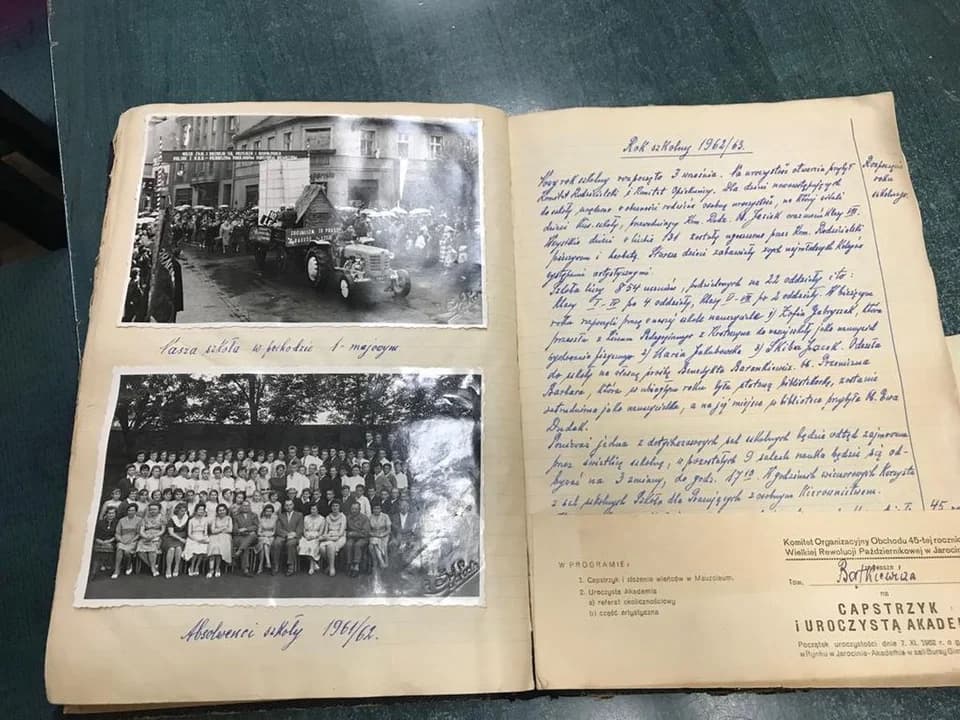 SOCJALIZM TO PRACA
Nasza szkoła w pochodzie 1-majowym
Absolwenci szkoły 1961/62.
Rok szkolny 1962/63.
Rozpoczęcie
roku
szkolnego.
Nowy rok szkolny rozpoczęto 3 września. Na uroczystość otwarcia przybył
Komitet Rodzicielski i Komitet Opiekuńczy. Dla dzieci nowowstępujących
do szkoły, urządzono w obecności rodziców osobną uroczystość, na której witali
dzieci Kier. szkoły, przewodniczący Kom. Rodz. Ob. Jasiek oraz uczniowie klasy VII.
Wszystkie dzieci w liczbie 131 zostały ugoszczone przez Kom. Rodzicielski
pieczywem i herbatą. Starsze dzieci zabawiały swych najmłodszych Kolegów
występami artystycznymi.
Szkoła liczy 854 uczniów, podzielonych na 22 oddziały i to:
klasy I-IV po 4 oddziały, klasy V-VII po 2 oddziały. W bieżącym
roku rozpoczęli pracę w naszej szkole nauczyciele 1) Zofia Gabryszak, która
przeszła z Liceum Pedagogicznego z Krotoszyna do naszej szkoły jako nauczyciel
wychowania fizycznego 2) Maria Jakubowska 3) Skiba Jacek. Odeszła
ze szkoły na własną prośbę Benedykta Barankiewicz. Ob.
Barbara, która w ubiegłym roku była płatną bibliotekarką, zostanie
zatrudniona jako nauczycielka, a na jej miejsce w bibliotece przybyła Ob. Ewa
Dudak.
Ponieważ jedna z dotychczasowych sal szkolnych będzie odtąd zajmowana
przez świetlicę szkolną, w pozostałych 9 salach nauka będzie się od-
bywać na 3 zmiany, do godz. 17 10. W godzinach wieczorowych korzysta
z sal szkolnych Szkoła dla Pracujących z osobnym Kierownictwem.
45
W PROGRAMIE:
1. Capstrzyk i złożenie wieńców w Mauzoleum.
2. Uroczysta Akademia
a) referat okolicznościowy
b) część artystyczna
Komitet Organizacyjny Obchodu 45-tej roczni
Wielkiej Rewolucji Październikowej w Jaroci
Tow. Bajkiewicza
na
CAPSTRZYK
i UROCZYSTĄ AKADE
Początek uroczystości dnia 7. XI. 1962 r. o g
w Rynku w Jarocinie-Akademia w sali Bursy Gim